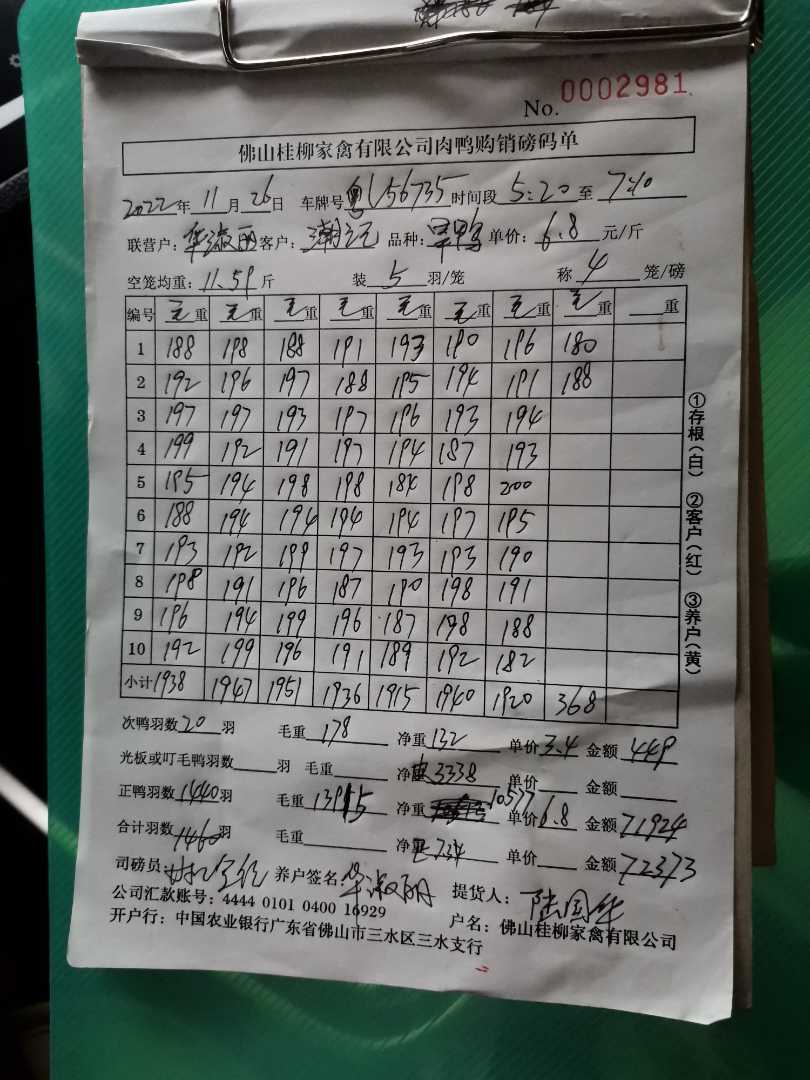 No. 0002981
佛山桂柳家禽有限公司肉鸭购销磅码单
2022年11月26日 车牌号粤L56735时间段5:20至7:10
联营户:华淑丽客户: 品种:旱鸭单价:6.8元/斤
空笼均重:11.59斤 装5羽/笼 称4笼/磅
编号 毛重 毛重 毛重 毛重 毛重 毛重 毛重 毛重 重
1 188 198 188 191 193 190 196 180
2 192 196 197 188 195 194 191 188
3 197 197 193 197 196 193 194
4 199 192 191 197 194 187 193
5 195 194 198 198 184 198 200
6 188 194 194 194 194 197 195
7 193 192 199 197 193 193 190
8 198 191 196 187 190 198 191
9 196 194 199 196 187 198 188
10 192 199 196 191 189 192 182
小计 1938 1947 1951 1936 1915 1940 1920 368
①存根(白) ②客户(红) ③养户(黄)
次鸭羽数20羽 毛重178 净重132 单价3.4金额449
光板或叮毛鸭羽数 羽 毛重 净 3338 单价 金额
正鸭羽数1440羽 毛重13915 净重 10577单价6.8金额71924
合计羽数1460羽 毛重 净 734 单价 金额72373
司磅员: 养户签名:华淑丽 提货人:陆国华
公司汇款账号:4444 0101 0400 16929
开户行:中国农业银行广东省佛山市三水区三水支行 户名:佛山桂柳家禽有限公司